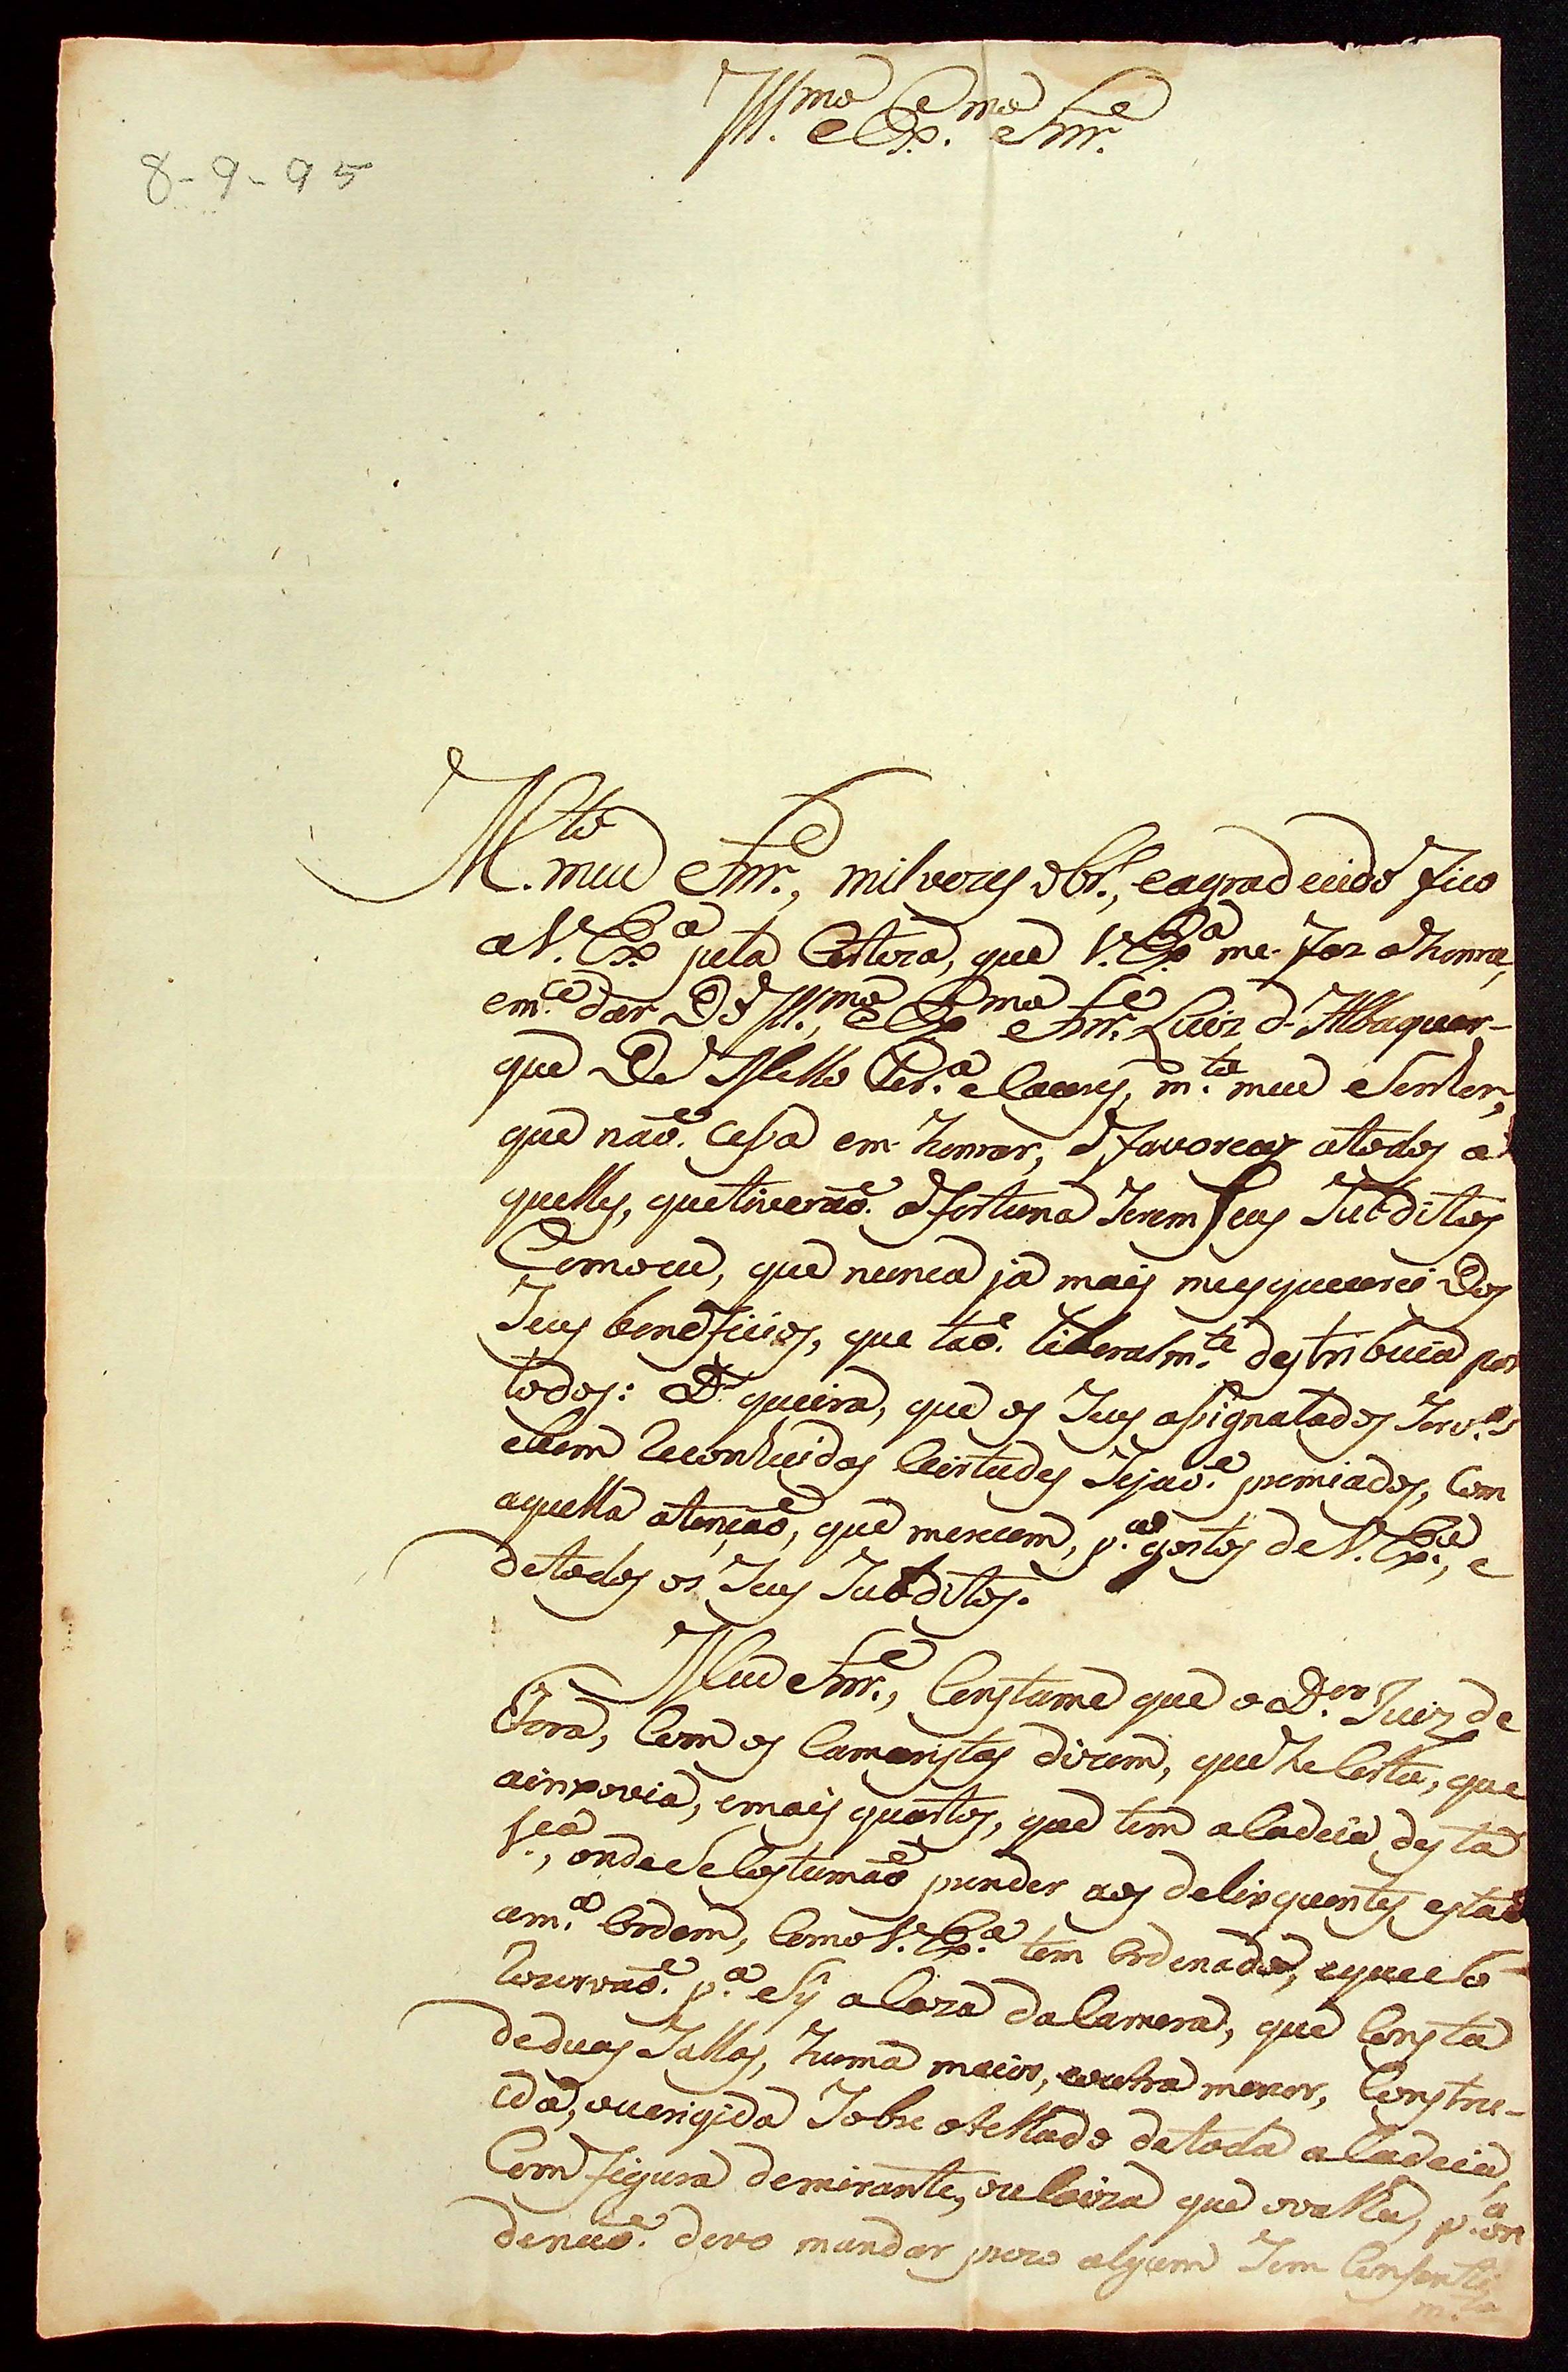 Ill.mo e Ex.mo Snr.
8-9-95
M.to meu Snr., mil vezes obr., e agradecido fico
a V. Ex.a pela Certeza, que V. Ex.a me faz a honra,
e m.ce dar Do Ill.mo e Ex.mo Snr. Luiz d'Albuquer-
que De Mello Per.a e Caceres, m.to meu Senhor,
que naõ. cessa em honrar, e favorecer atodos a
quelles, quetiveraõ. afortuna Serem seus Subditos
Comoeu, que nunca ja mais meesquecerei Dos
Seus beneficios, que taõ. liberalm.te destribuia por
todos: D.s queira, que os Seus assignalados Serv.os
e bem Reconhecidas Virtudes Sejaõ. premiados, Com
aquella atençaõ, que merecem, p.a gostos de V. Ex.a, e
detodos os Seus Subditos.
Meu Snr., Constame que o D.or Juiz de
Fora, Com os Camaristas dizem, que he Certo, que
aenxovia, emais quartos, que tem aCadeia desta
V.a, onde se Costumaõ prender aos delinquentes estaõ
am.a Ordem, Como V. Ex.a tem Ordenado, eque só
Rezervaõ. p.a Sy aCaza daCamera, que Consta
deduas Sallas, huma maior, eoutra menor, Constru-
ida, ouerigida Sobre otellado detoda aCadeia,
Com figura demirante, ou Couza que ovalha, p.a on
denaõ. devo mandar prezo algum Sem Consenti
m.to